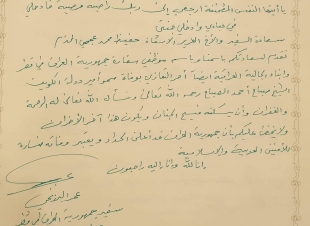 يا أيتها النفس المطمئنة ارجعي إلى ربك راضية مرضية فادخلي
في عبادي وادخلي جنتي
سعادة السيد والأخ العزيز الأستاذ حفيظ محمد العجمي المحترم
نتقدم لسعادتكم باسمنا وباسم موظفي سفارة جمهورية العراق في قطر
وأبناء الجالية العراقية أيضاً أحر التعازي بوفاة سمو أمير دولة الكويت
الشيخ صباح أحمد الصباح رحمه الله تعالى ونسأل الله تعالى له الرحمة
والغفران وأن يسكنه فسيح الجنان ويكون هذا آخر الأحزان
ولا يخفى عليكم بأن جمهورية العراق قد أعلن الحداد ويعتبر وفاته خسارة
للأمتين العربية والإسلامية
إنا لله وإنا إليه راجعون
عمر البرزنجي
سفير جمهورية العراق في قطر